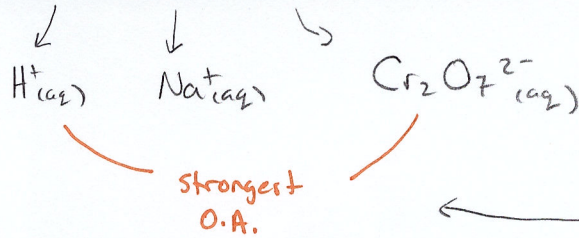 H⁺(aq) Na⁺(aq) Cr₂O₇²⁻(aq)
strongest
O.A.